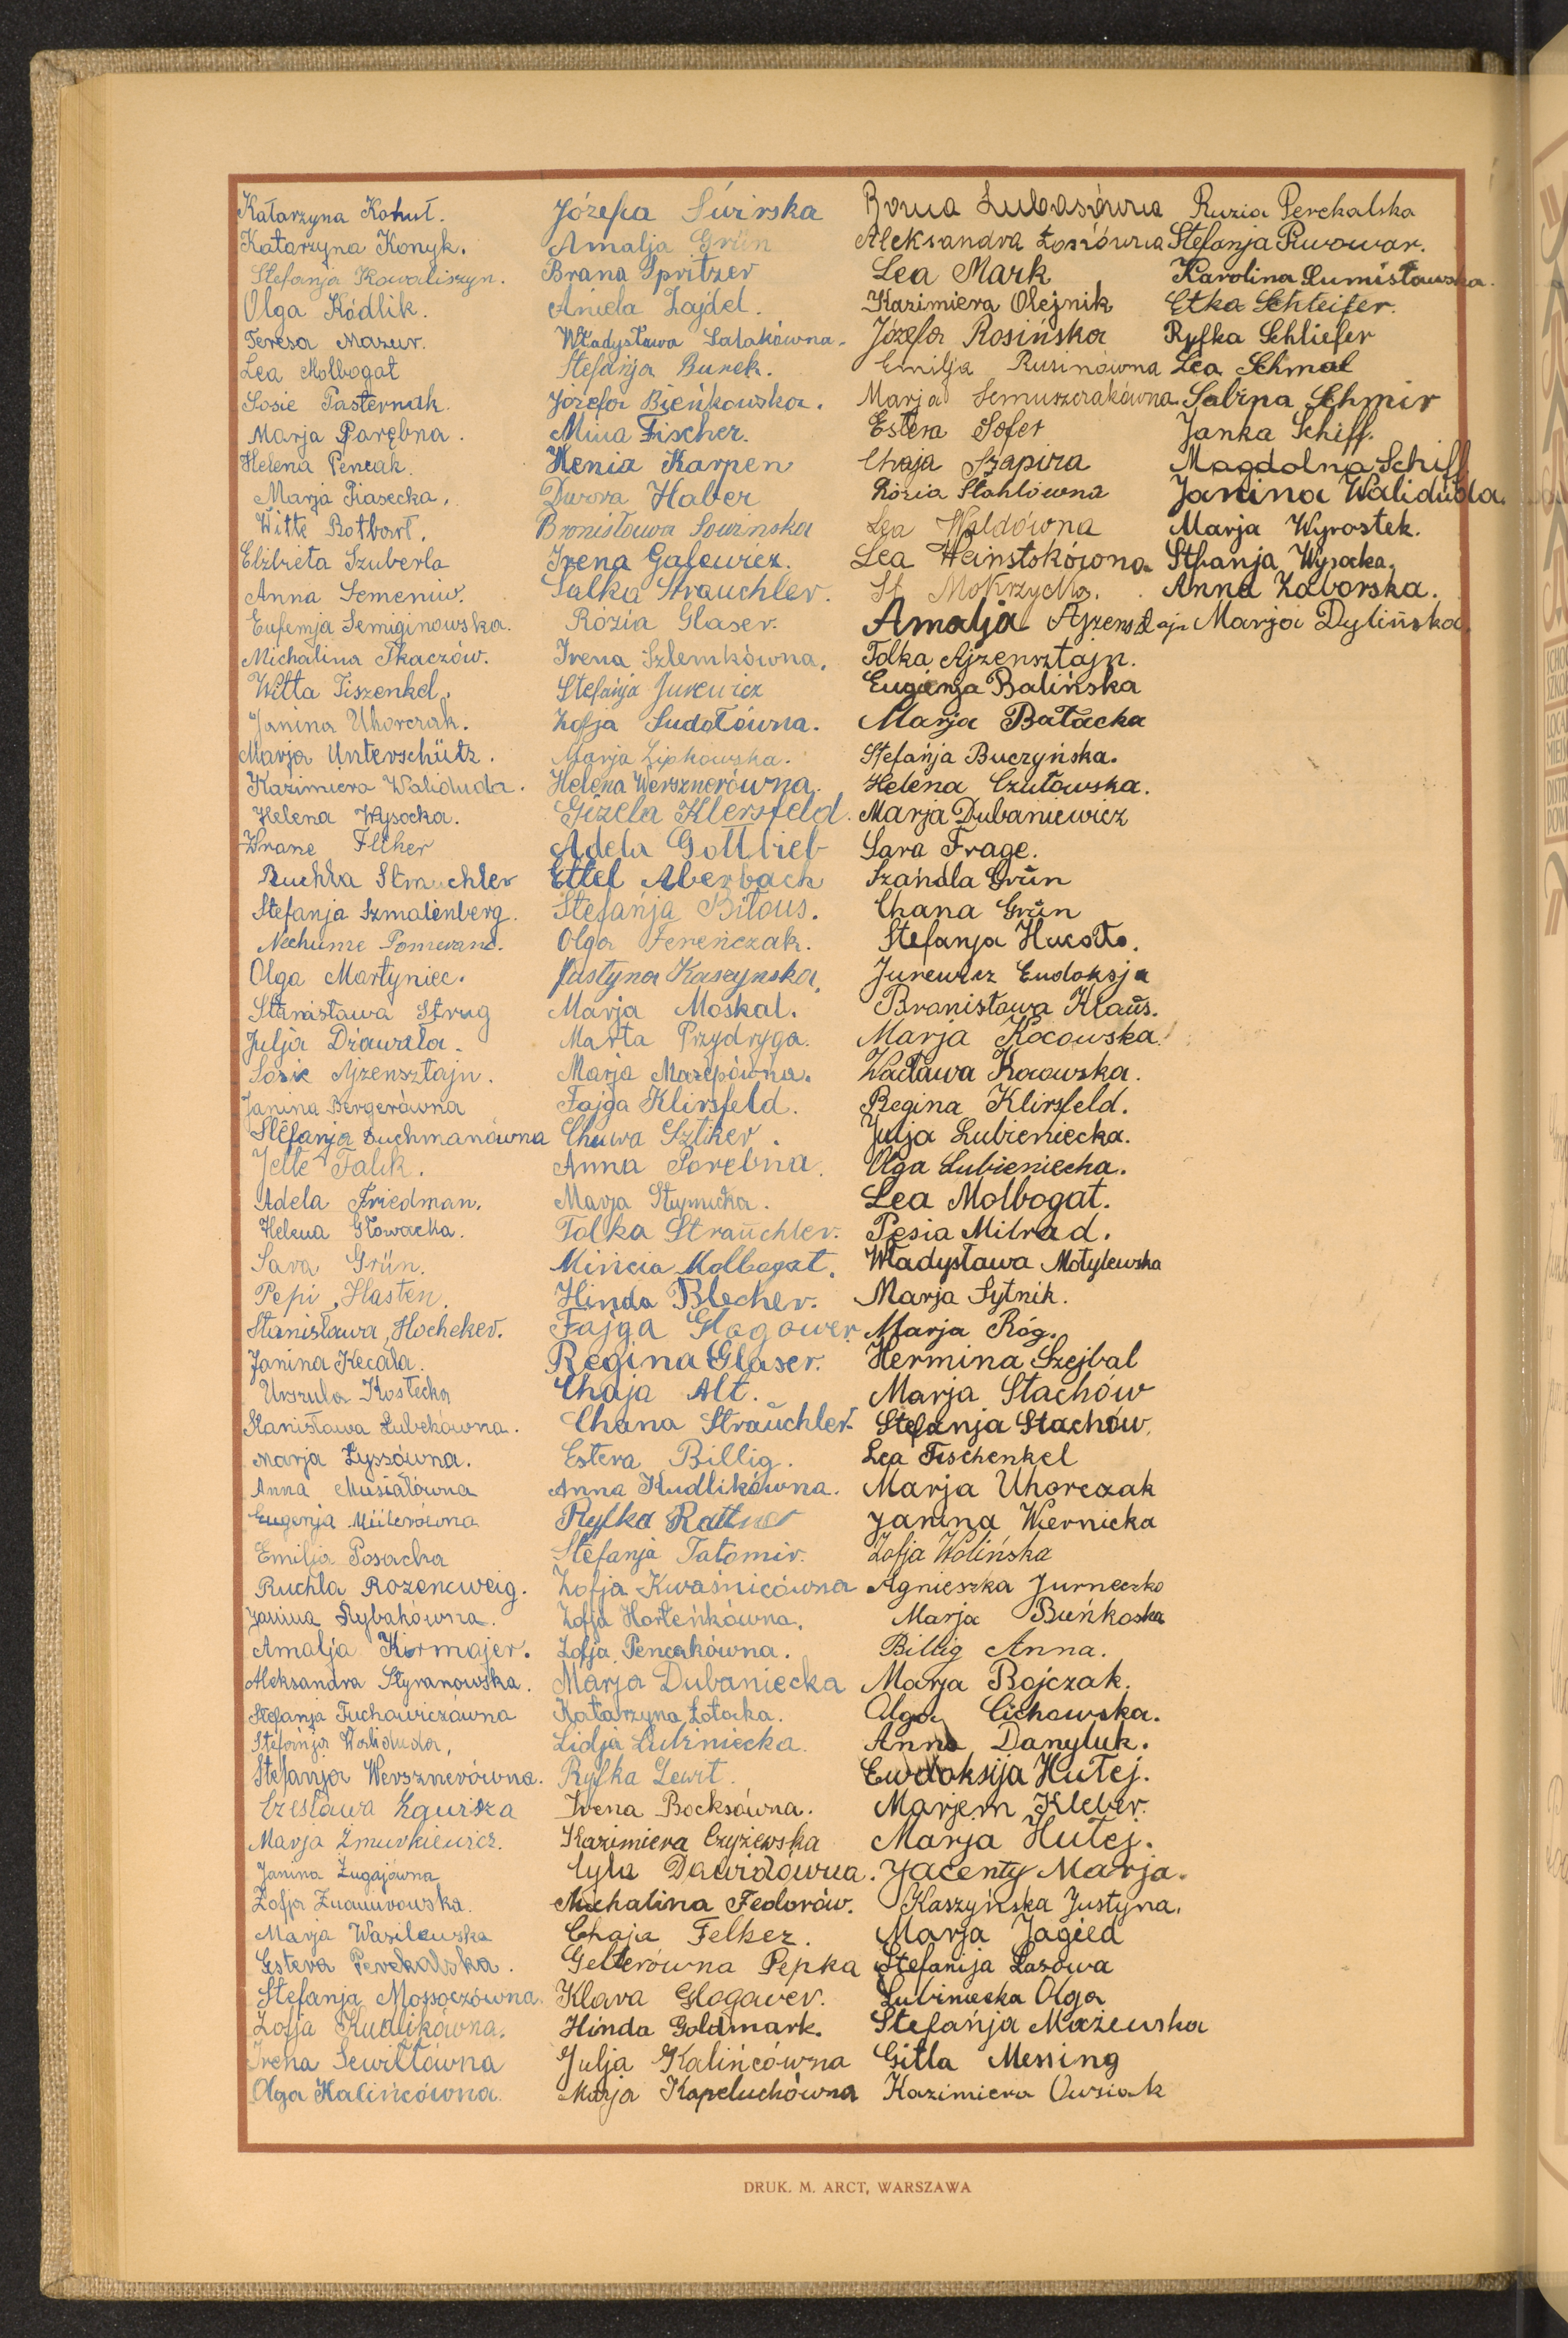 Katarzyna Kohut.
Katarzyna Konyk.
Stefanja Kowaliszyn.
Olga Kódlik.
Teresa Mazur.
Lea Molbogat
Sosie Pasternak.
Marja Parębna.
Helena Pencak.
Marja Piasecka.
Witte Rotbart.
Elżbieta Szuberla
Anna Semeniw.
Eufemja Semiginowska.
Michalina Tkaczów.
Witta Tiszenkel.
Janina Uhorczak.
Marja Unterschütz.
Kazimiera Waliduda.
Helena Wysocka.
Felker
Ruchla Strauchler
Stefanja Szmalenberg.
Nechume Pomeranc.
Olga Martyniec.
Stanisława Strug
Julja Dziawała.
Sosie Ajzensztajn.
Janina Bergerówna
Stefanja Duchmanówna
Jette Falik.
Adela Friedman.
Helena Głowacka.
Sara Grün.
Pepi Hasten.
Stanisława Hocheker.
Janina Kecała.
Urszula Kostecka
Stanisława Lubekówna.
Marja Łyssówna.
Anna Musiałówna
Eugenja Müllerówna
Emilja Posacka
Ruchla Rozencweig.
Janina Rybakówna.
Amalja Kirmajer.
Aleksandra Styranowska.
Stefanja Tuchowiczówna
Stefanja Waliduda.
Stefanja Wersznerówna.
Czesława Zgurska
Marja Żmurkiewicz.
Janina Żugajówna
Zofja
Marja Wasilewska
Estera Perekalska.
Stefanja Mossoczówna.
Zofja Kudlikówna.
Irena Sewiłłówna
Olga Kalińcówna.
Józefa Świrska
Amalja Grün
Brana Spritzer
Aniela Zajdel.
Władysława Sałakówna.
Stefanja Burek.
Józefa Bieńkowska.
Mina Fischer.
Henia Karpen
Dwora Haber
Bronisława Sowinska
Irena Galewicz.
Salka Strauchler.
Rózia Glaser.
Irena Szlemkówna.
Stefanja Jurewicz
Zofja Sudołówna.
Marja Lipkowska.
Helena Wersznerówna.
Gizela Klersfeld.
Adela Gottlieb
Ettel Aberbach
Stefanja Biłous.
Olga Ferenczak.
Justyna Kaszynska.
Marja Moskal.
Marta Przydryga.
Marja Mazepówna.
Fajga Klirsfeld.
Chuwa Sztiker.
Anna Porębna.
Marja
Tolka Strauchler.
Mincia Molbogat.
Hinda Blecher.
Fajga Glogower
Regina Glaser.
Chaja Alt.
Chana Strauchler.
Estera Billig.
Anna Kudlikówna.
Ryfka Rattner
Stefanja Tatomir.
Zofja Kwaśnicówna
Zofja Horteńkówna.
Zofja Pencakówna.
Marja Dubaniecka
Katarzyna Łotocka.
Lidja Lubiniecka.
Ryfka Lewit.
Irena Bocksówna.
Kazimiera Czyżewska
Cyla Dawidówna.
Michalina Fedorów.
Chaja Felker.
Gellerówna Pepka
Klara Glogawer.
Hinda Goldmark.
Julja Kalińcówna
Marja Kapeluchówna
Roma Lubasówna
Aleksandra Łosiówna
Lea Mark
Kazimiera Olejnik
Józefa Rosińska
Emilja Rusinówna
Marja Semuszczakówna
Estera Sofer
Chaja Szapira
Rózia Stahlówna
Lea Waldówna
Lea
St. Mokrzycka.
Amalja Ajzensztajn
Tolka Ajzensztajn.
Eugenja Balińska
Marja Batacka
Stefanja Buczyńska.
Helena Czułowska.
Marja Dubaniewicz
Sara Frage.
Szandla Grün
Chana Grün
Stefanja
Jurewicz Eudoksja
Bronisława Klaus.
Marja Kocowska.
Wacława Kocowska.
Regina Klirsfeld.
Julja Lubieniecka.
Olga Lubieniecka.
Lea Molbogat.
Pesia Milrad.
Władysława Motylewska
Marja Sytnik.
Marja Róg.
Hermina Szejbal
Marja Stachów
Stefanja Stachów.
Lea Tischenkel
Marja Uhorczak
Janina Wiernicka
Zofja Wolińska
Agnieszka Jurneczko
Marja Bieńkoska
Billig Anna.
Marja Bojczak.
Olga Cichowska.
Anna Danyluk.
Ewdoksija Hutej.
Marjem Kleber.
Marja Hutej.
Jacenty Marja.
Kaszyńska Justyna.
Marja Jagied
Stefanija Lasowa
Lubiniecka Olga
Stefanja Mażewska
Gitla Messing
Kazimiera Owsiak
Ruzia Perekalska
Stefanja Piwowar.
Karolina Rumisławska.
Etka Schleifer.
Ryfka Schliefer
Lea Schmal
Sabina Schmir
Janka Schiff.
Magdolna Schiff
Janina Waliduda.
Marja Wyrostek.
Stefanja Wysocka.
Anna Zaborska.
Marja Dylińska.
DRUK. M. ARCT, WARSZAWA